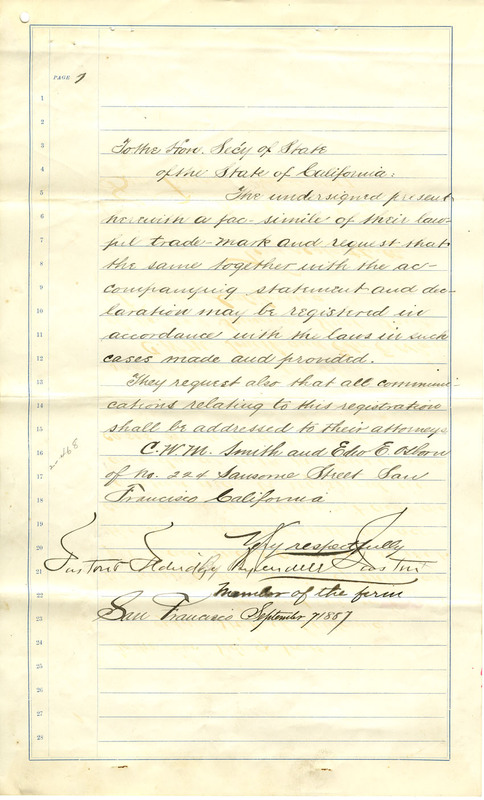 PAGE 1
1
2
3 To the Hon. Sec'y of State
4 of the State of California:
5 The undersigned present
6 herewith a fac-simile of their law-
7 ful trade-mark and request that
8 the same together with the ac-
9 companying statement and dec-
10 laration may be registered in
11 accordance with the laws in such
12 cases made and provided.
13 They request also that all communi-
14 cations relating to this registration
15 shall be addressed to their attorneys
16 C. W. M. Smith and Edw E. Osborn
17 of No. 224 Sansome Street San
18 Francisco California
19
20 Very respectfully
21 Easton & Eldridge By Wendell Easton
22 Member of the firm
23 San Francisco September 7 1887
24
25
26
27
28